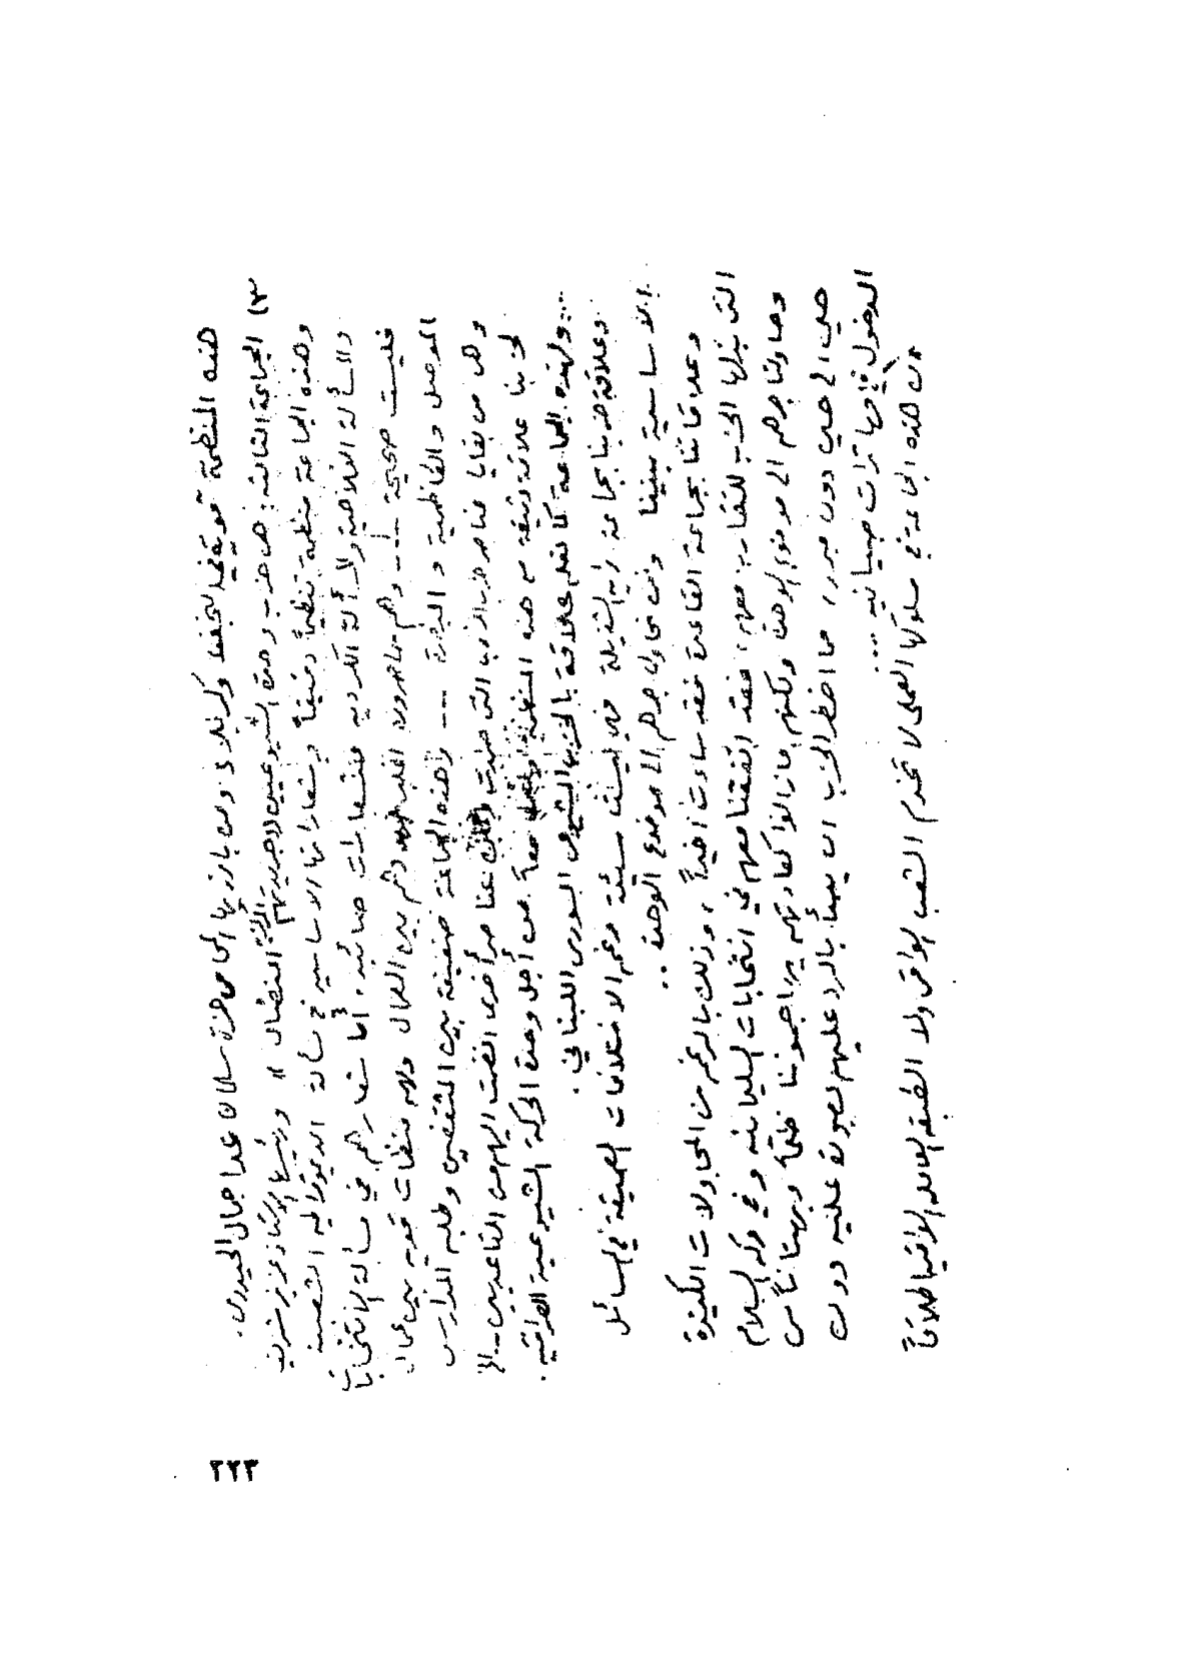 هذه المنظمة قوية في النجف وكربلاء ومن بارزيها المحامي حمزة سلمان عدا جمال الحيدري.
٣) الجماعة الثالثة: هي حزب وحدة الشيوعيين (جريدتهم النضال» ورئيسها الاستاذ عزيز شريف
وهذه الجماعة منظمة تنظيماً دقيقاً وشعاراتها الاساسية في مسألة الديموقراطية الشعبية
والمسألة الفلاحية والمسألة الكردية فشعارات صائبة. أما شعارهم في مسألة الانتخابات
فليست صحيحة ... وهم ماهرون اغلب وهم بين العمال ولهم منظمات قوية بين عمال
الموصل والكاظمية والبصرة ... وهذه الجماعة ضعيفة بين المثقفين وطلبة المدارس
وهي من بقايا عناصر حزب الشعب التي عناصر أخرى انضمت اليهم من القاعديين .. الخ
لحزبنا علاقة وثيقة مع هذه المنظمة ونعمل معاً من أجل وحدة الحركة الشيوعية العراقية.
... ولهذه الجماعة كما نعلم علاقة بالحزب الشيوعي السوري اللبناني.
وعلاقة حزبنا بجماعة راية الشغيلة فهي ليست سيئة رغم الاختلافات العميقة في المسائل
الاساسية بيننا ونحن نحاول جرهم الى موضوع الوحدة ..
وعلاقاتنا بجماعة القاعدة فقد ساءت اخيراً، وذلك بالرغم من المحاولات الكثيرة
التي بذلها الحزب للتقارب معهم، فقد اتفقنا معهم في انتخابات السليمانية وفي حركة السلام
وحاولنا جرهم الى موضوع الوحدة ولكنهم مازالوا كعادتهم يهاجموننا ظلماً وبهتاناً من
حين الى حين دون مبرر، مما اضطر الحزب ان يبدأ بالرد عليهم بصورة علنية دون
الدخول في مهاترات صبيانية ....
ان هذه الجماعة في سلوكها العملي لا تخدم الشعب العراقي ولا الطبقة العاملة العراقية اطلاقاً
٢٢٣